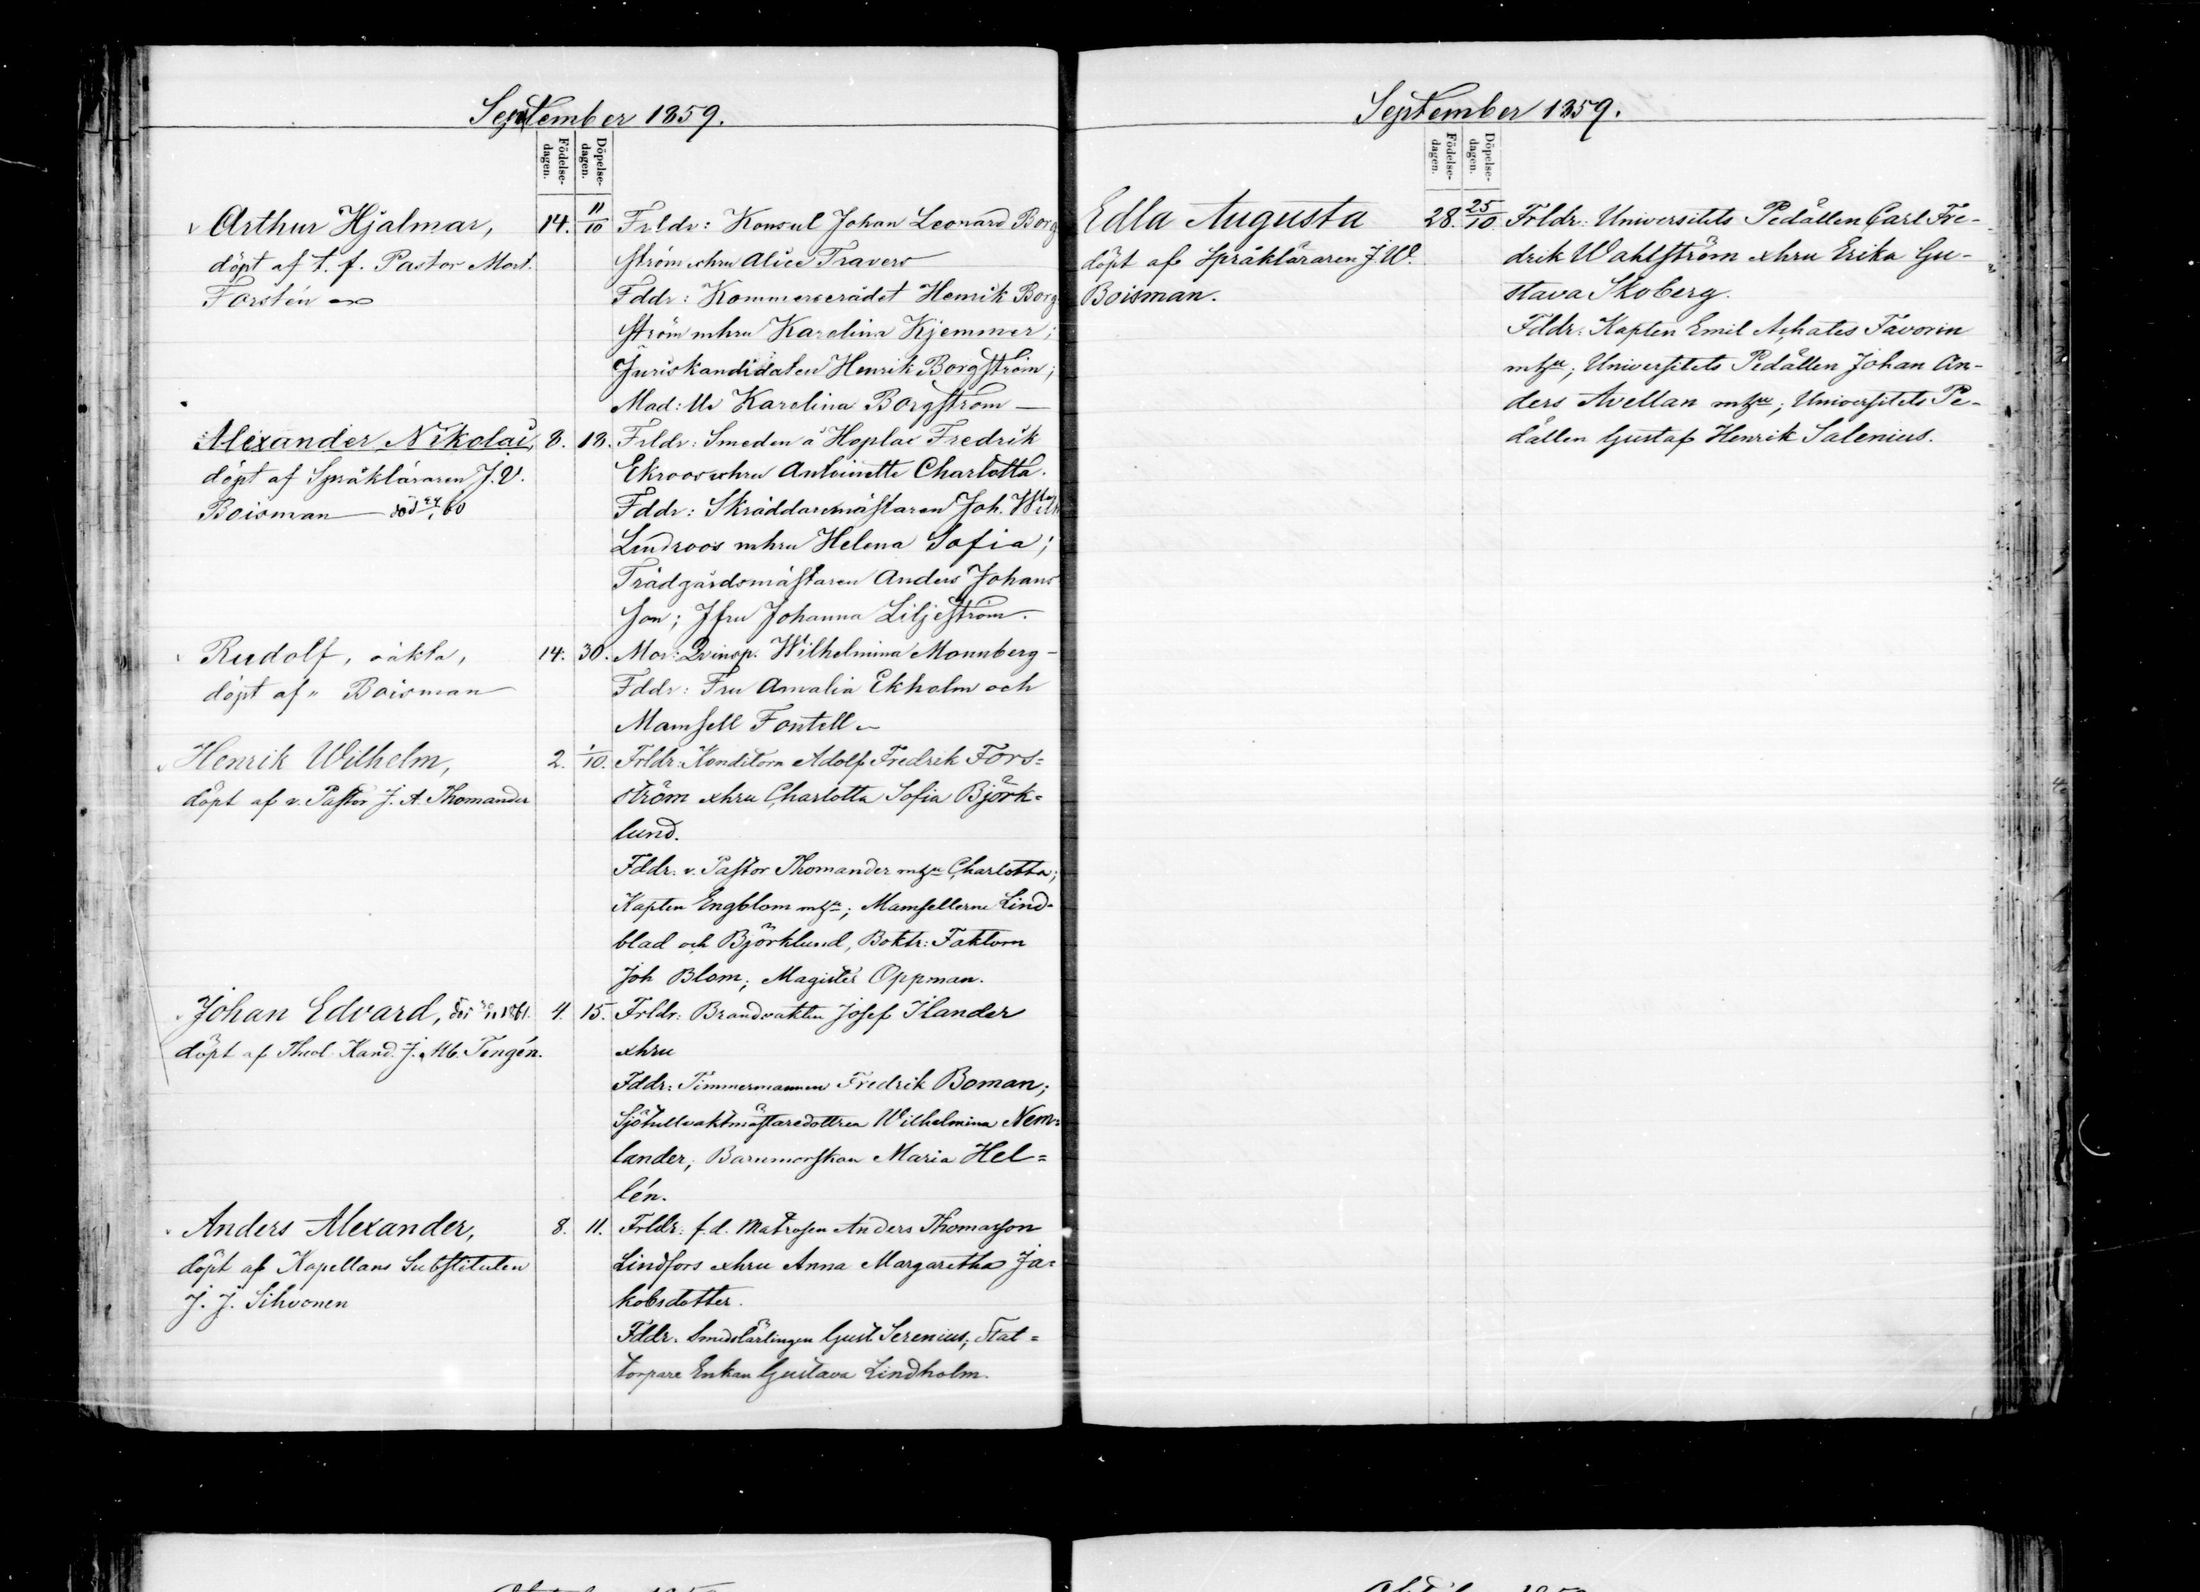 September 1859.
Födelse-
dagen.
Döpelse-
dagen.
Arthur Hjalmar,
döpt af t. f. Pastor Mort.
Forstén
14. 11/10
Frldr: Konsul Johan Leonard Borg
ström o hru Alice Travers
Fddr: Kommerserådet Henrik Borg
ström mhru Karolina Kjemmer;
Juriskandidaten Henrik Borgström;
Mad:lle Karolina Borgström —
Alexander Nikolai,
döpt af Språkläraren J. V.
Boisman — död 60
8. 18.
Frldr: Smeden å Hoplax Fredrik
Ekroos ohru Antoinette Charlotta.
Fddr: Skräddaremästaren Joh. Wilh
Lindroos mhru Helena Sofia;
Trädgårdsmästaren Anders Johans
son; Jfru Johanna Liljeström.
Rudolf, oäkta,
döpt af " Boisman
14. 30.
Mor: Qvinsp. Wilhelmina Monnberg –
Fddr: Fru Amalia Ekholm och
Mamsell Fontell
Henrik Wilhelm,
döpt af v. Pastor J. A. Thomander
2. 1/10.
Frldr: Konditorn Adolf Fredrik Fors=
ström ohru Charlotta Sofia Björk=
lund.
Fddr: v. Pastor Thomander mhu Charlotta;
Kapten Engblom mhu; Mamsellerne Lind=
blad och Björklund, Boktr: Faktorn
Joh Blom; Magister Oppman.
Johan Edvard, död 1861.
döpt af Theol. Kand. J. Mb. Tengén.
4. 15.
Frldr: Brandvakten Josef Ilander
ohru
Fddr: Timmermannen Fredrik Boman;
Sjötullvaktmästaredottren Wilhelmina Nem=
lander; Barnmorskan Maria Hel=
lén.
Anders Alexander,
döpt af Kapellans Substituten
J. J. Sihvonen
8. 11.
Frldr: f.d. Matrosen Anders Thomasson
Lindfors ohru Anna Margaretha Ja=
kobsdotter.
Fddr: Smedslärlingen Gust Serenius; Stat=
torpare Enkan Gustava Lindholm.
September 1859.
Födelse-
dagen.
Döpelse-
dagen.
Edla Augusta
döpt af Språkläraren J. W.
Boisman.
28. 25/10.
Frldr: Universitets Pedällen Carl Fre-
drik Wahlström ohru Erika Gu-
stava Skoberg.
Fddr: Kapten Emil Achates Favorin
mhu; Universitets Pedällen Johan An-
ders Avellan mhu; Universitets Pe-
dällen Gustaf Henrik Salenius.